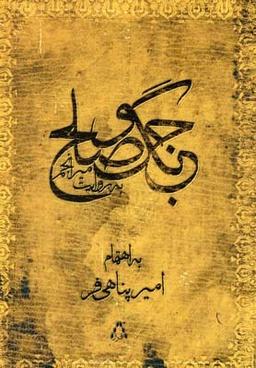 جنگ و صلح
به روایت میرانجم
به اهتمام
امیر پناهی فر